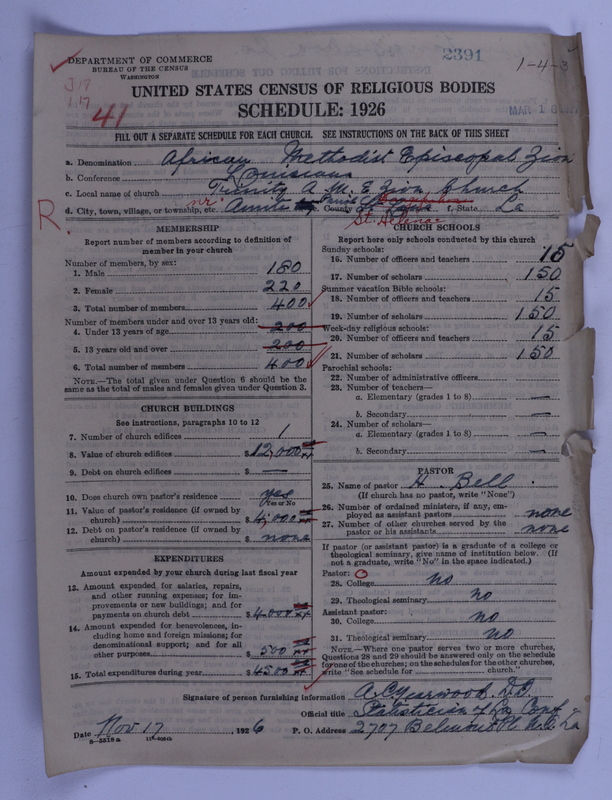 2391
1-4-3
DEPARTMENT OF COMMERCE
BUREAU OF THE CENSUS
WASHINGTON
J 17
41
MAR 1
UNITED STATES CENSUS OF RELIGIOUS BODIES
SCHEDULE: 1926
FILL OUT A SEPARATE SCHEDULE FOR EACH CHURCH. SEE INSTRUCTIONS ON THE BACK OF THIS SHEET
a. Denomination African Methodist Episcopal Zion
b. Conference Louisiana
c. Local name of church Trinity A. M. E. Zion Church
R. d. City, town, village, or township, etc. nr. Amite e. County Parish f. State La
St. Helena
MEMBERSHIP
Report number of members according to definition of member in your church
Number of members, by sex:
1. Male 180
2. Female 220
3. Total number of members 400
Number of members under and over 13 years old:
4. Under 13 years of age 200
5. 13 years old and over 200
6. Total number of members 400
NOTE.—The total given under Question 6 should be the same as the total of males and females given under Question 3.
CHURCH BUILDINGS
See instructions, paragraphs 10 to 12
7. Number of church edifices 1
8. Value of church edifices $ 12,000 xx
9. Debt on church edifices $ —
10. Does church own pastor's residence yes
Yes or No
11. Value of pastor's residence (if owned by church) $ 4,000 xx
12. Debt on pastor's residence (if owned by church) $ none
EXPENDITURES
Amount expended by your church during last fiscal year
13. Amount expended for salaries, repairs, and other running expenses; for improvements or new buildings; and for payments on church debt $ 4000 xx
14. Amount expended for benevolences, including home and foreign missions; for denominational support; and for all other purposes $ 500 xx
15. Total expenditures during year $ 4500 xx
CHURCH SCHOOLS
Report here only schools conducted by this church
Sunday schools:
16. Number of officers and teachers 15
17. Number of scholars 150
Summer vacation Bible schools:
18. Number of officers and teachers 15
19. Number of scholars 150
Week-day religious schools:
20. Number of officers and teachers 15
21. Number of scholars 150
Parochial schools:
22. Number of administrative officers
23. Number of teachers—
a. Elementary (grades 1 to 8) —
b. Secondary —
24. Number of scholars—
a. Elementary (grades 1 to 8) —
b. Secondary —
PASTOR
25. Name of pastor H. Bell
(If church has no pastor, write "None")
26. Number of ordained ministers, if any, employed as assistant pastors none
27. Number of other churches served by the pastor or his assistants none
If pastor (or assistant pastor) is a graduate of a college or theological seminary, give name of institution below. (If not a graduate, write "No" in the space indicated.)
Pastor: O
28. College no
29. Theological seminary no
Assistant pastor:
30. College no
31. Theological seminary no
NOTE.—Where one pastor serves two or more churches, Questions 28 and 29 should be answered only on the schedule for one of the churches; on the schedules for the other churches, write "See schedule for church."
Signature of person furnishing information A. C. Yearwood, D.D.
Official title Statistician of La Conf
Date Nov 17, 1926 P. O. Address 2707 Belmont Pl N. O. La
8-5518a